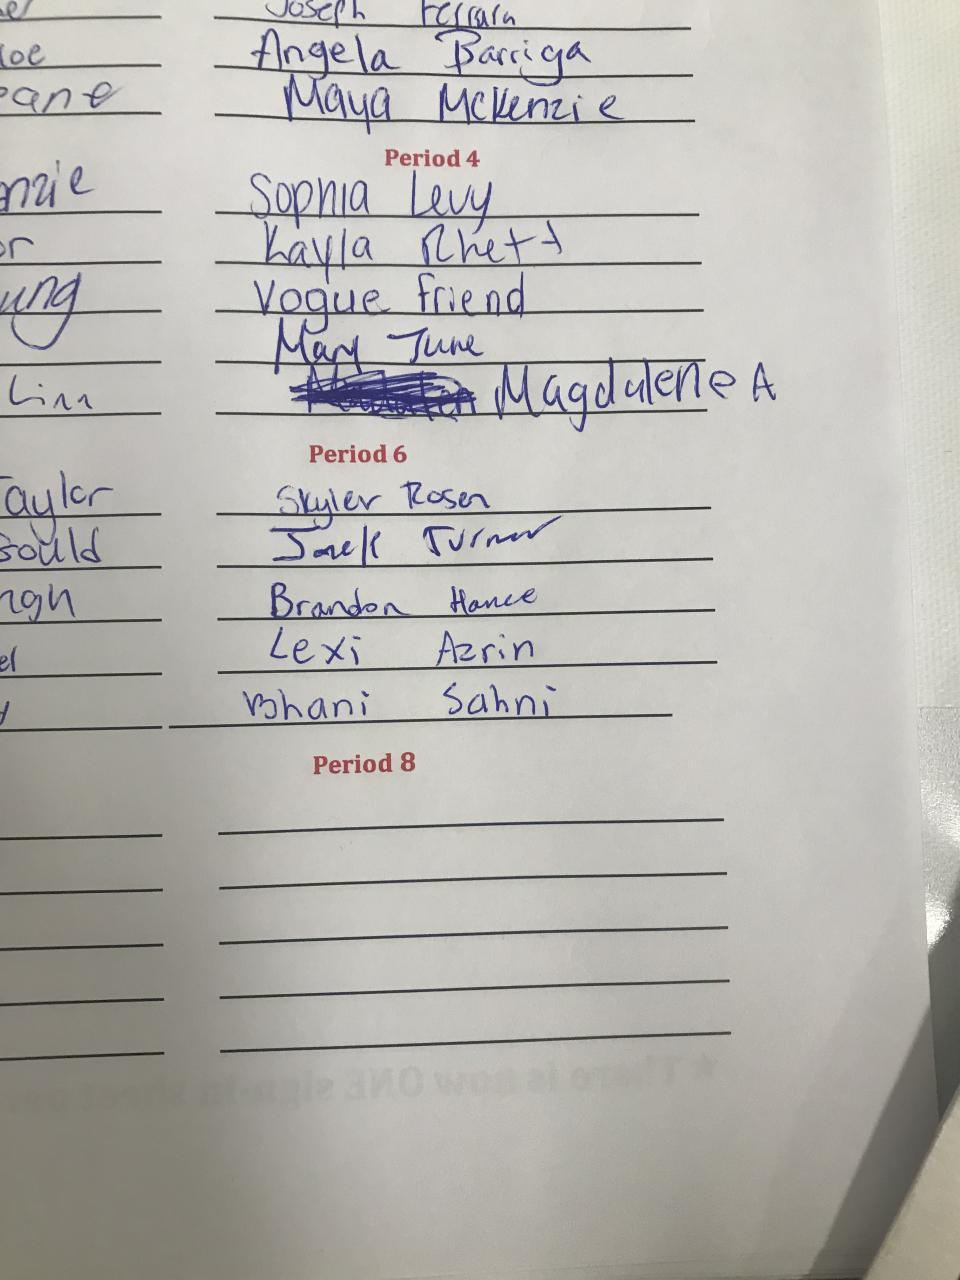 Joseph Ferrara
loe Angela Barriga
eane Maya McKenzie
Period 4
nzie Sophia Levy
or Kayla Rhett
ung Vogue Friend
Mary June
Linn Magdalene A
Period 6
Taylor Skyler Rosen
Gould Jack Turner
ngh Brandon Hance
el Lexi Azrin
Bhani Sahni
Period 8
* There is now ONE sign-in sheet per